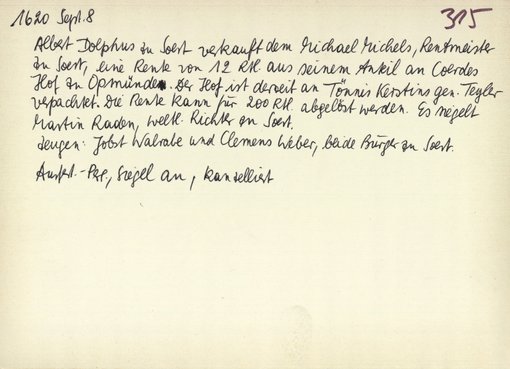 1620 Sept. 8
315
Albert Dolphus zu Soest verkauft dem Michael Michels, Rentmeister
zu Soest, eine Rente von 12 Rtl. aus seinem Anteil an Coerdes
Hof zu Opmünden. Der Hof ist derzeit an Tönnis Kerstins gen. Tegler
verpachtet. Die Rente kann für 200 Rtl. abgelöst werden. Es siegelt
Martin Raden, weltl. Richter zu Soest.
Zeugen: Jobst Walrabe und Clemens Weber, beide Bürger zu Soest.
Ausfert.-Perg., Siegel an, kanzelliert